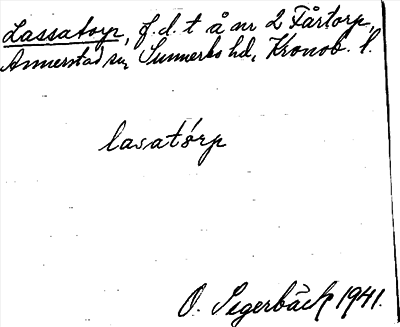 Lassatorp, f.d. t å nr 2 Fårtorp,
Annerstad sn, Sunnerbo hd, Kronob. l.
lasatórp
O. Segerbäck 1941.